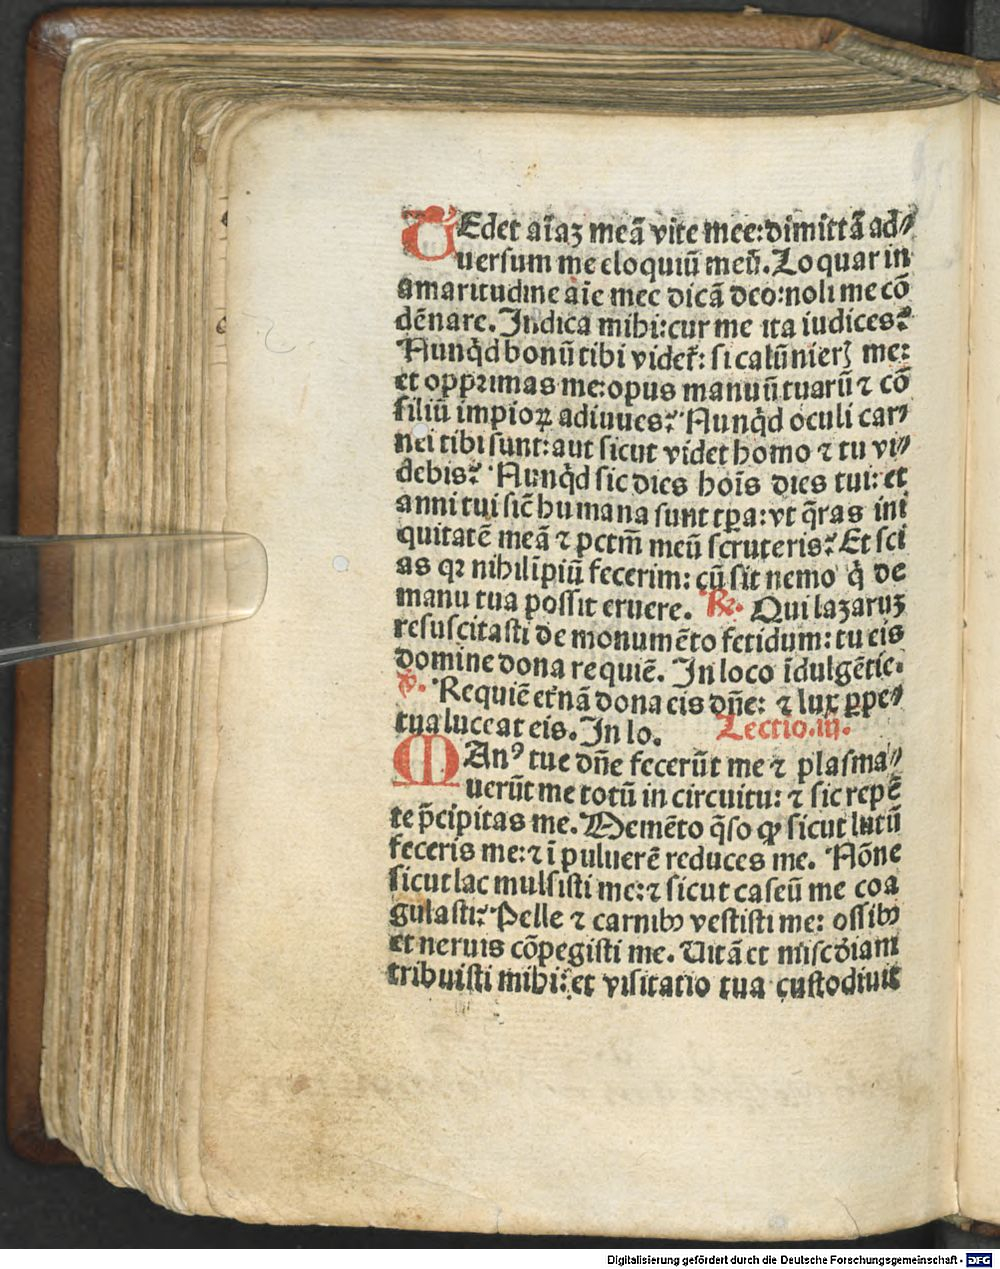 TEdet aīaz meā vite mee:dimittā ad⸗
uersum me eloquiū meū. Loquar in
amaritudine aīe mee dicā deo:noli me cō
dēnare. Indica mihi:cur me ita iudices?
Nunq̄d bonū tibi videt᷑: si calūnieris me:
et opprimas me:opus manuū tuarū ⁊ cō
siliū impioꝝ adiuues? Nunq̄d oculi car⸗
nei tibi sunt:aut sicut videt homo ⁊ tu vi⸗
debis? Nunq̄d sic dies hoīs dies tui: et
anni tui sic̄ humana sunt tꝑa: vt q̄ras ini
quitatē meā ⁊ pctm̄ meū scruteris? Et sci
as qꝛ nihil īpiū fecerim: cū sit nemo q̇ de
manu tua possit eruere. ℟. Qui lazaruz
resuscitasti de monumēto fetidum: tu eis
domine dona requiē. In loco īdulgētie.
℣. Requiē et᷑nā dona eis dn̄e: ⁊ lux ꝑpe⸗
tua luceat eis. In lo. Lectio.iij.
MAnꝰ tue dn̄e fecerūt me ⁊ plasma⸗
uerūt me totū in circuitu: ⁊ sic repē
te p̄cipitas me. Memēto q̄so ꝙ sicut lutū
feceris me:⁊ ī puluerē reduces me. Nōne
sicut lac mulsisti me:⁊ sicut caseū me coa
gulasti? Pelle ⁊ carnibꝰ vestisti me: ossibꝰ
et neruis cōpegisti me. Uitā et misc̄diam
tribuisti mihi: et visitatio tua custodiuit
Digitalisierung gefördert durch die Deutsche Forschungsgemeinschaft - DFG